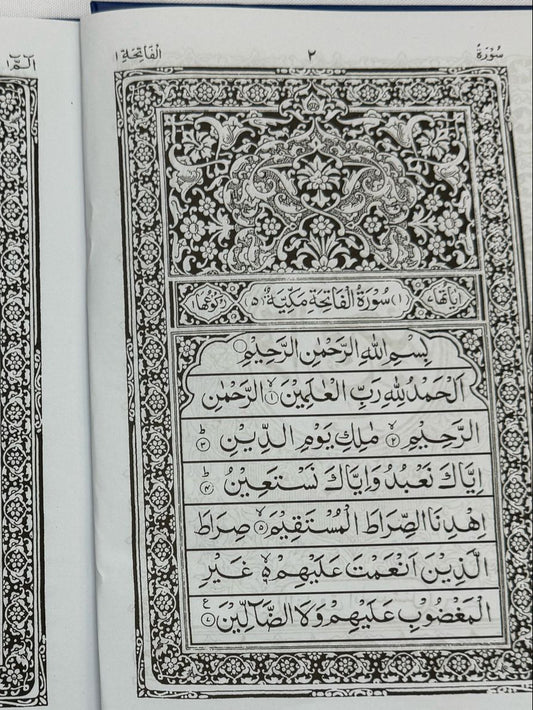 سُوْرَةُ ٢ الْفَاتِحَةِ ١
الٓمّٓ ١
اٰيَاتُهَا ٧ (١) سُوْرَةُ الْفَاتِحَةِ مَكِّيَّةٌ (٥) رُكُوْعُهَا ١
بِسْمِ اللّٰهِ الرَّحْمٰنِ الرَّحِيْمِ
اَلْحَمْدُ لِلّٰهِ رَبِّ الْعٰلَمِيْنَ ۙ﴿١﴾ الرَّحْمٰنِ
الرَّحِيْمِ ۙ﴿٢﴾ مٰلِكِ يَوْمِ الدِّيْنِ ؕ﴿٣﴾
اِيَّاكَ نَعْبُدُ وَاِيَّاكَ نَسْتَعِيْنُ ؕ﴿٤﴾
اِهْدِنَا الصِّرَاطَ الْمُسْتَقِيْمَ ۙ﴿٥﴾ صِرَاطَ
الَّذِيْنَ اَنْعَمْتَ عَلَيْهِمْ ۙ۬ۦ غَيْرِ
الْمَغْضُوْبِ عَلَيْهِمْ وَلَا الضَّآلِّيْنَ ﴿٧﴾ ع